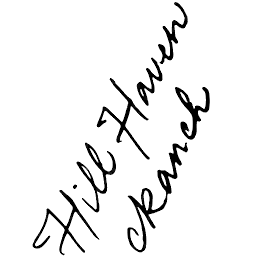 Hill Haven
Ranch